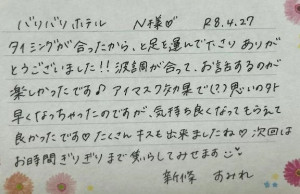 バリバリホテル N様♡ R8.4.27
タイミングが合ったから、と足を運んで下さりありが
とうございました!!波調が合って、お話するのが
楽しかったです♪アイマスク効果で(?)思いの外
早くなっちゃったのですが、気持ち良くなってもらえて
良かったです♡たくさんキスも出来ましたね♡次回は
お時間ぎりぎりまで焦らしてみせます
新條 すみれ